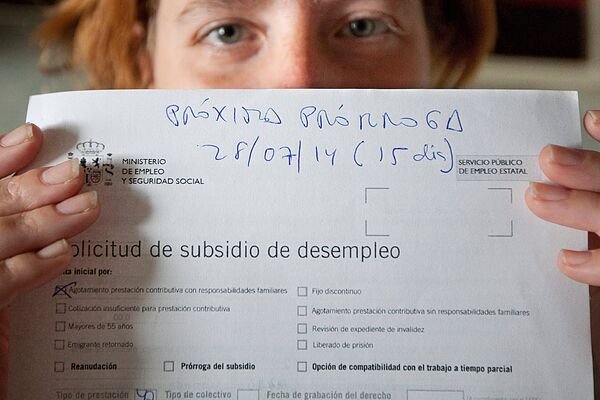 PRÓXIMA PRÓRROGA
28/07/14 (15 días)
MINISTERIO
DE EMPLEO
Y SEGURIDAD SOCIAL
SERVICIO PÚBLICO
DE EMPLEO ESTATAL
olicitud de subsidio de desempleo
ta inicial por:
Agotamiento prestación contributiva con responsabilidades familiares
Fijo discontinuo
Cotización insuficiente para prestación contributiva
Agotamiento prestación contributiva sin responsabilidades familiares
Mayores de 55 años
Revisión de expediente de invalidez
Emigrante retornado
Liberado de prisión
Reanudación
Prórroga del subsidio
Opción de compatibilidad con el trabajo a tiempo parcial
Tipo de prestación
Tipo de colectivo
Fecha de grabación del derecho